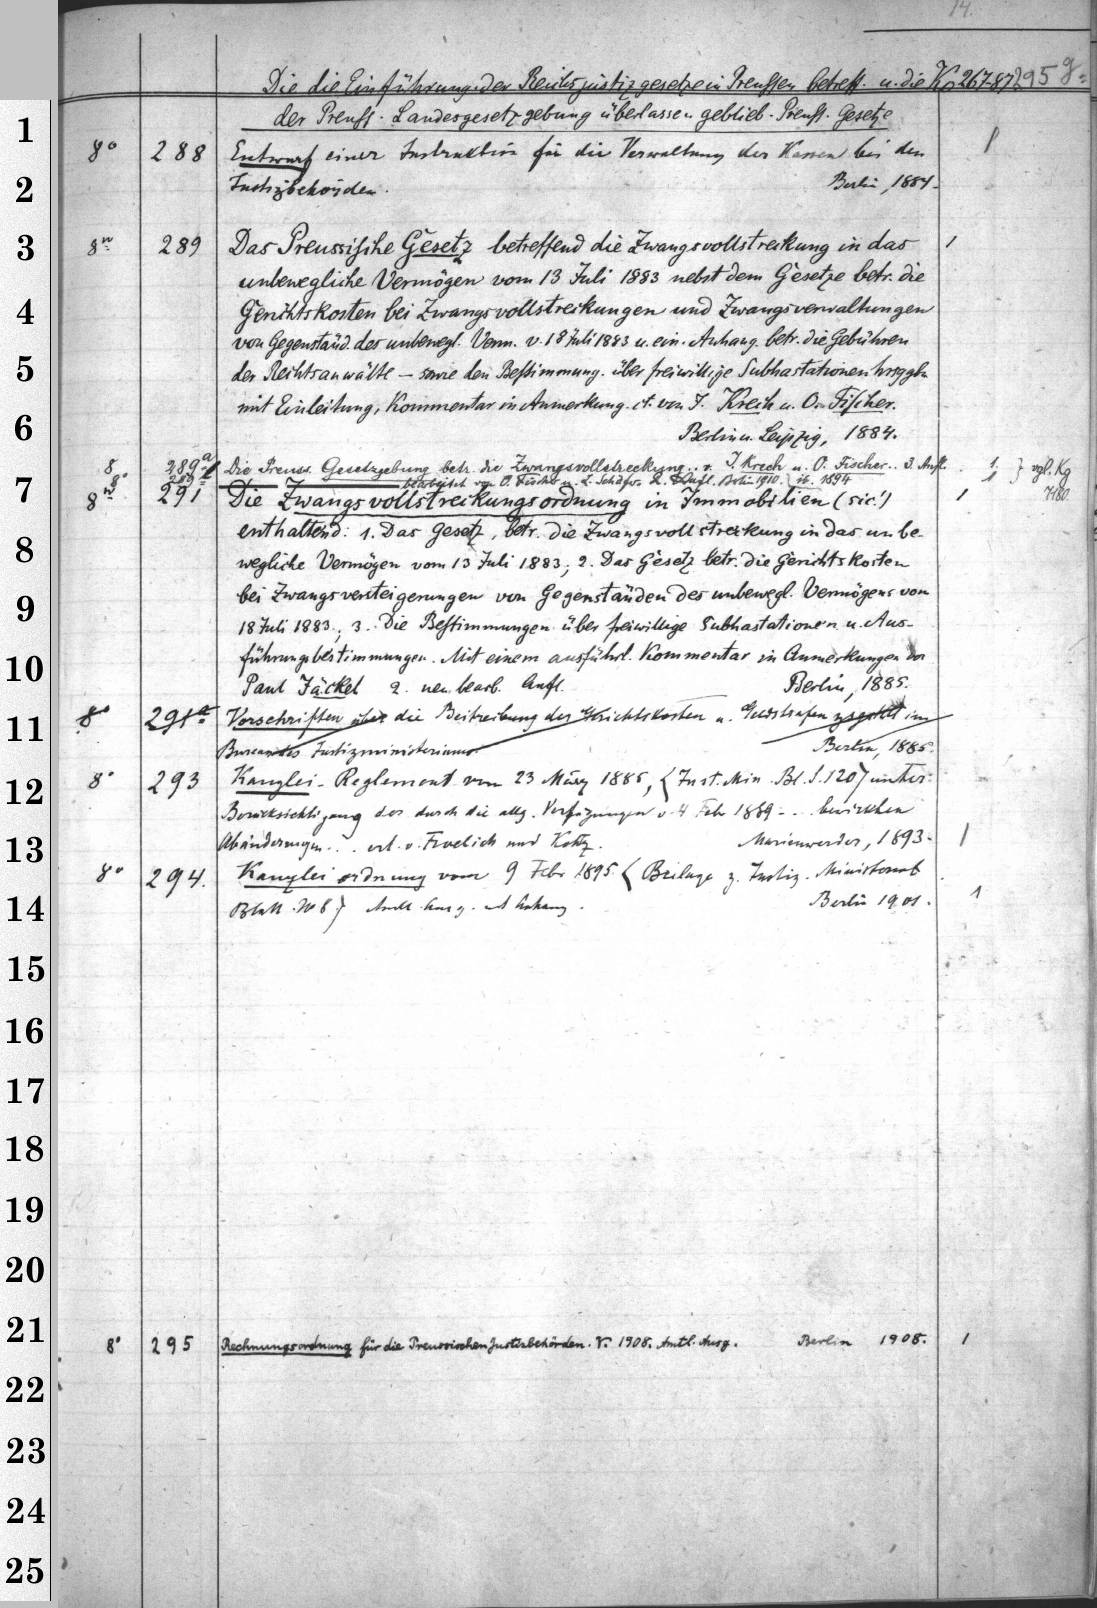 14.
Die die Einführung der Reichsjustizgesetze in Preussen betreff. u. die Kp 267-87/295 g.
der Preuß. Landesgesetzgebung überlassen geblieb. Preuß. Gesetze
1
8° 288 Entwurf einer Instruktion für die Verwaltung der Kassen bei den 1
2 Justizbehörden. Berlin, 1884.
3 8° 289 Das Preussische Gesetz betreffend die Zwangsvollstreckung in das 1
unbewegliche Vermögen vom 13 Juli 1883 nebst dem Gesetze betr. die
4 Gerichtskosten bei Zwangsvollstreckungen und Zwangsverwaltungen
von Gegenständ. des unbewegl. Verm. v. 18 Juli 1883 u. ein. Anhang. betr. die Gebühren
5 der Rechtsanwälte – sowie den Bestimmung. über freiwillige Subhastationen hrsggbn
mit Einleitung, Kommentar in Anmerkung. et. von J. Krech u. O. Fischer.
6 Berlin u. Leipzig, 1884.
8 289a Die Preuss. Gesetzgebung betr. die Zwangsvollstreckung .. v. J. Krech u. O. Fischer.. 3. Aufl. 1 } vgl. Kg
8° 289 bearbeitet von O. Fischer u. L. Schäfer. Aufl. Berlin 1910. ib. 1894 1
7 8° 291 Die Zwangsvollstreckungsordnung in Immobilien (sic!) 1 7180.
enthaltend: 1. Das Gesetz, betr. die Zwangsvollstreckung in das unbe-
8 wegliche Vermögen vom 13 Juli 1883; 2. Das Gesetz betr. die Gerichtskosten
9 bei Zwangsversteigerungen von Gegenständen des unbewegl. Vermögens vom
18 Juli 1883.; 3. Die Bestimmungen über freiwillige Subhastationen u. Aus-
10 führungsbestimmungen. Mit einem ausführl. Kommentar in Anmerkungen von
Paul Jäckel 2. neu bearb. Aufl. Berlin, 1885.
11 8° 291a Vorschriften über die Beitreibung der Gerichtskosten u. Geldstrafen zsgestellt im
Bureau des Justizministeriums. Berlin, 1885.
12 8° 293 Kanzlei-Reglement vom 23 März 1885, (Just. Min. Bl. S. 120) unter
Berücksichtigung der durch die allg. Verfügungen v. 4 Febr 1889 - .. bewirkten
13 Abänderungen.. erl. v. Froelich und Kotz. Marienwerder, 1893. 1
8° 294. Kanzleiordnung vom 9 Febr 1895. (Beilage z. Justiz-Ministerial
14 Blatt No 8) Amtl. Ausg. Anhang. Berlin 1901. 1
15
16
17
18
19
20
21 8° 295 Rechnungsordnung für die Preussischen Justizbehörden. V. 1908. Amtl. Ausg. Berlin 1908. 1
22
23
24
25